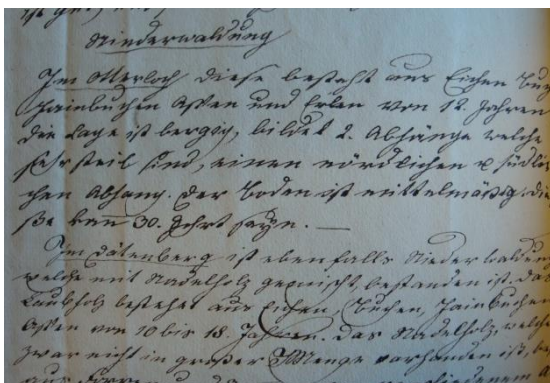 Niederwaldung
Im Otterloch diese besteht aus Eichen Buch
Hainbuchen Asten und Erlen von 12. Jahren
Die Lage ist bergig, bildet 2. Abhänge welche
sehr steil sind, einen nördlichen u südli
chen Abhang. Der Boden ist mittelmäßig. die
ße kan 30. Jahrt sayn.
Im Dätenberg ist ebenfalls Niederwaldun
welche mit Nadelholz gemischt, bestanden ist. Das
Laubholz bestehet aus Eichen, Buchen, Hainbuchen
Asten von 10 bis 18. Jahren. Das Nadelholz, welche
zwar nicht in großer Menge vorhanden ist, be
aus